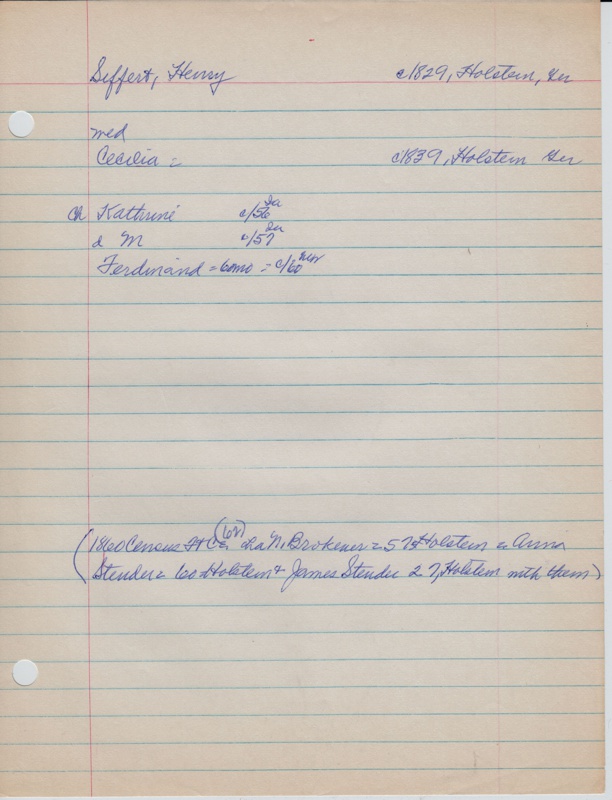 Seffert, Henry c1829, Holstein, Ger
med
Cecilia = c1839, Holstein Ger
ch Kathrine c/56 Ia
d M c/57 Ia
Ferdinand = 6mo = c/60
(1860 Census (62) N. Brokener = 57 Holstein = Anna
Stender = 60 Holstein + James Stender 27, Holstein with them)